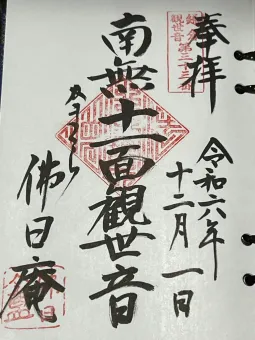 奉拝
鎌倉
観世音第三十三番
令和六年
十二月一日
南無十一面観世音
かまくら
佛日庵